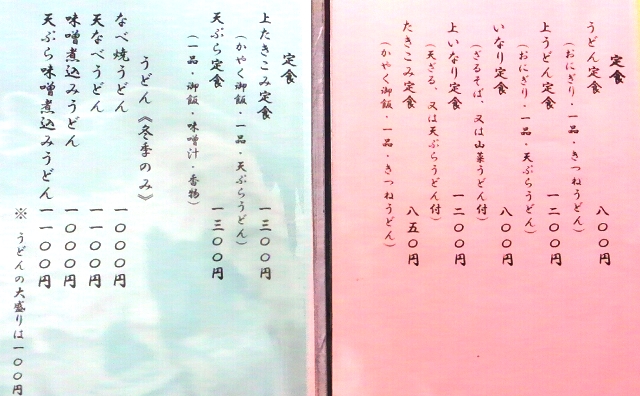 定食
うどん定食 八〇〇円
（おにぎり・一品・きつねうどん）
上うどん定食 一二〇〇円
（おにぎり・一品・天ぷらうどん）
いなり定食 八〇〇円
（ざるそば、又は山菜うどん付）
上いなり定食 一二〇〇円
（天ざる、又は天ぷらうどん付）
たきこみ定食 八五〇円
（かやく御飯・一品・きつねうどん）
定食
上たきこみ定食 一三〇〇円
（かやく御飯・一品・天ぷらうどん）
天ぷら定食 一三〇〇円
（一品・御飯・味噌汁・香物）
うどん《冬季のみ》
なべ焼うどん 一〇〇〇円
天なべうどん 一一〇〇円
味噌煮込みうどん 一〇〇〇円
天ぷら味噌煮込みうどん 一一〇〇円
※ うどんの大盛りは一〇〇円